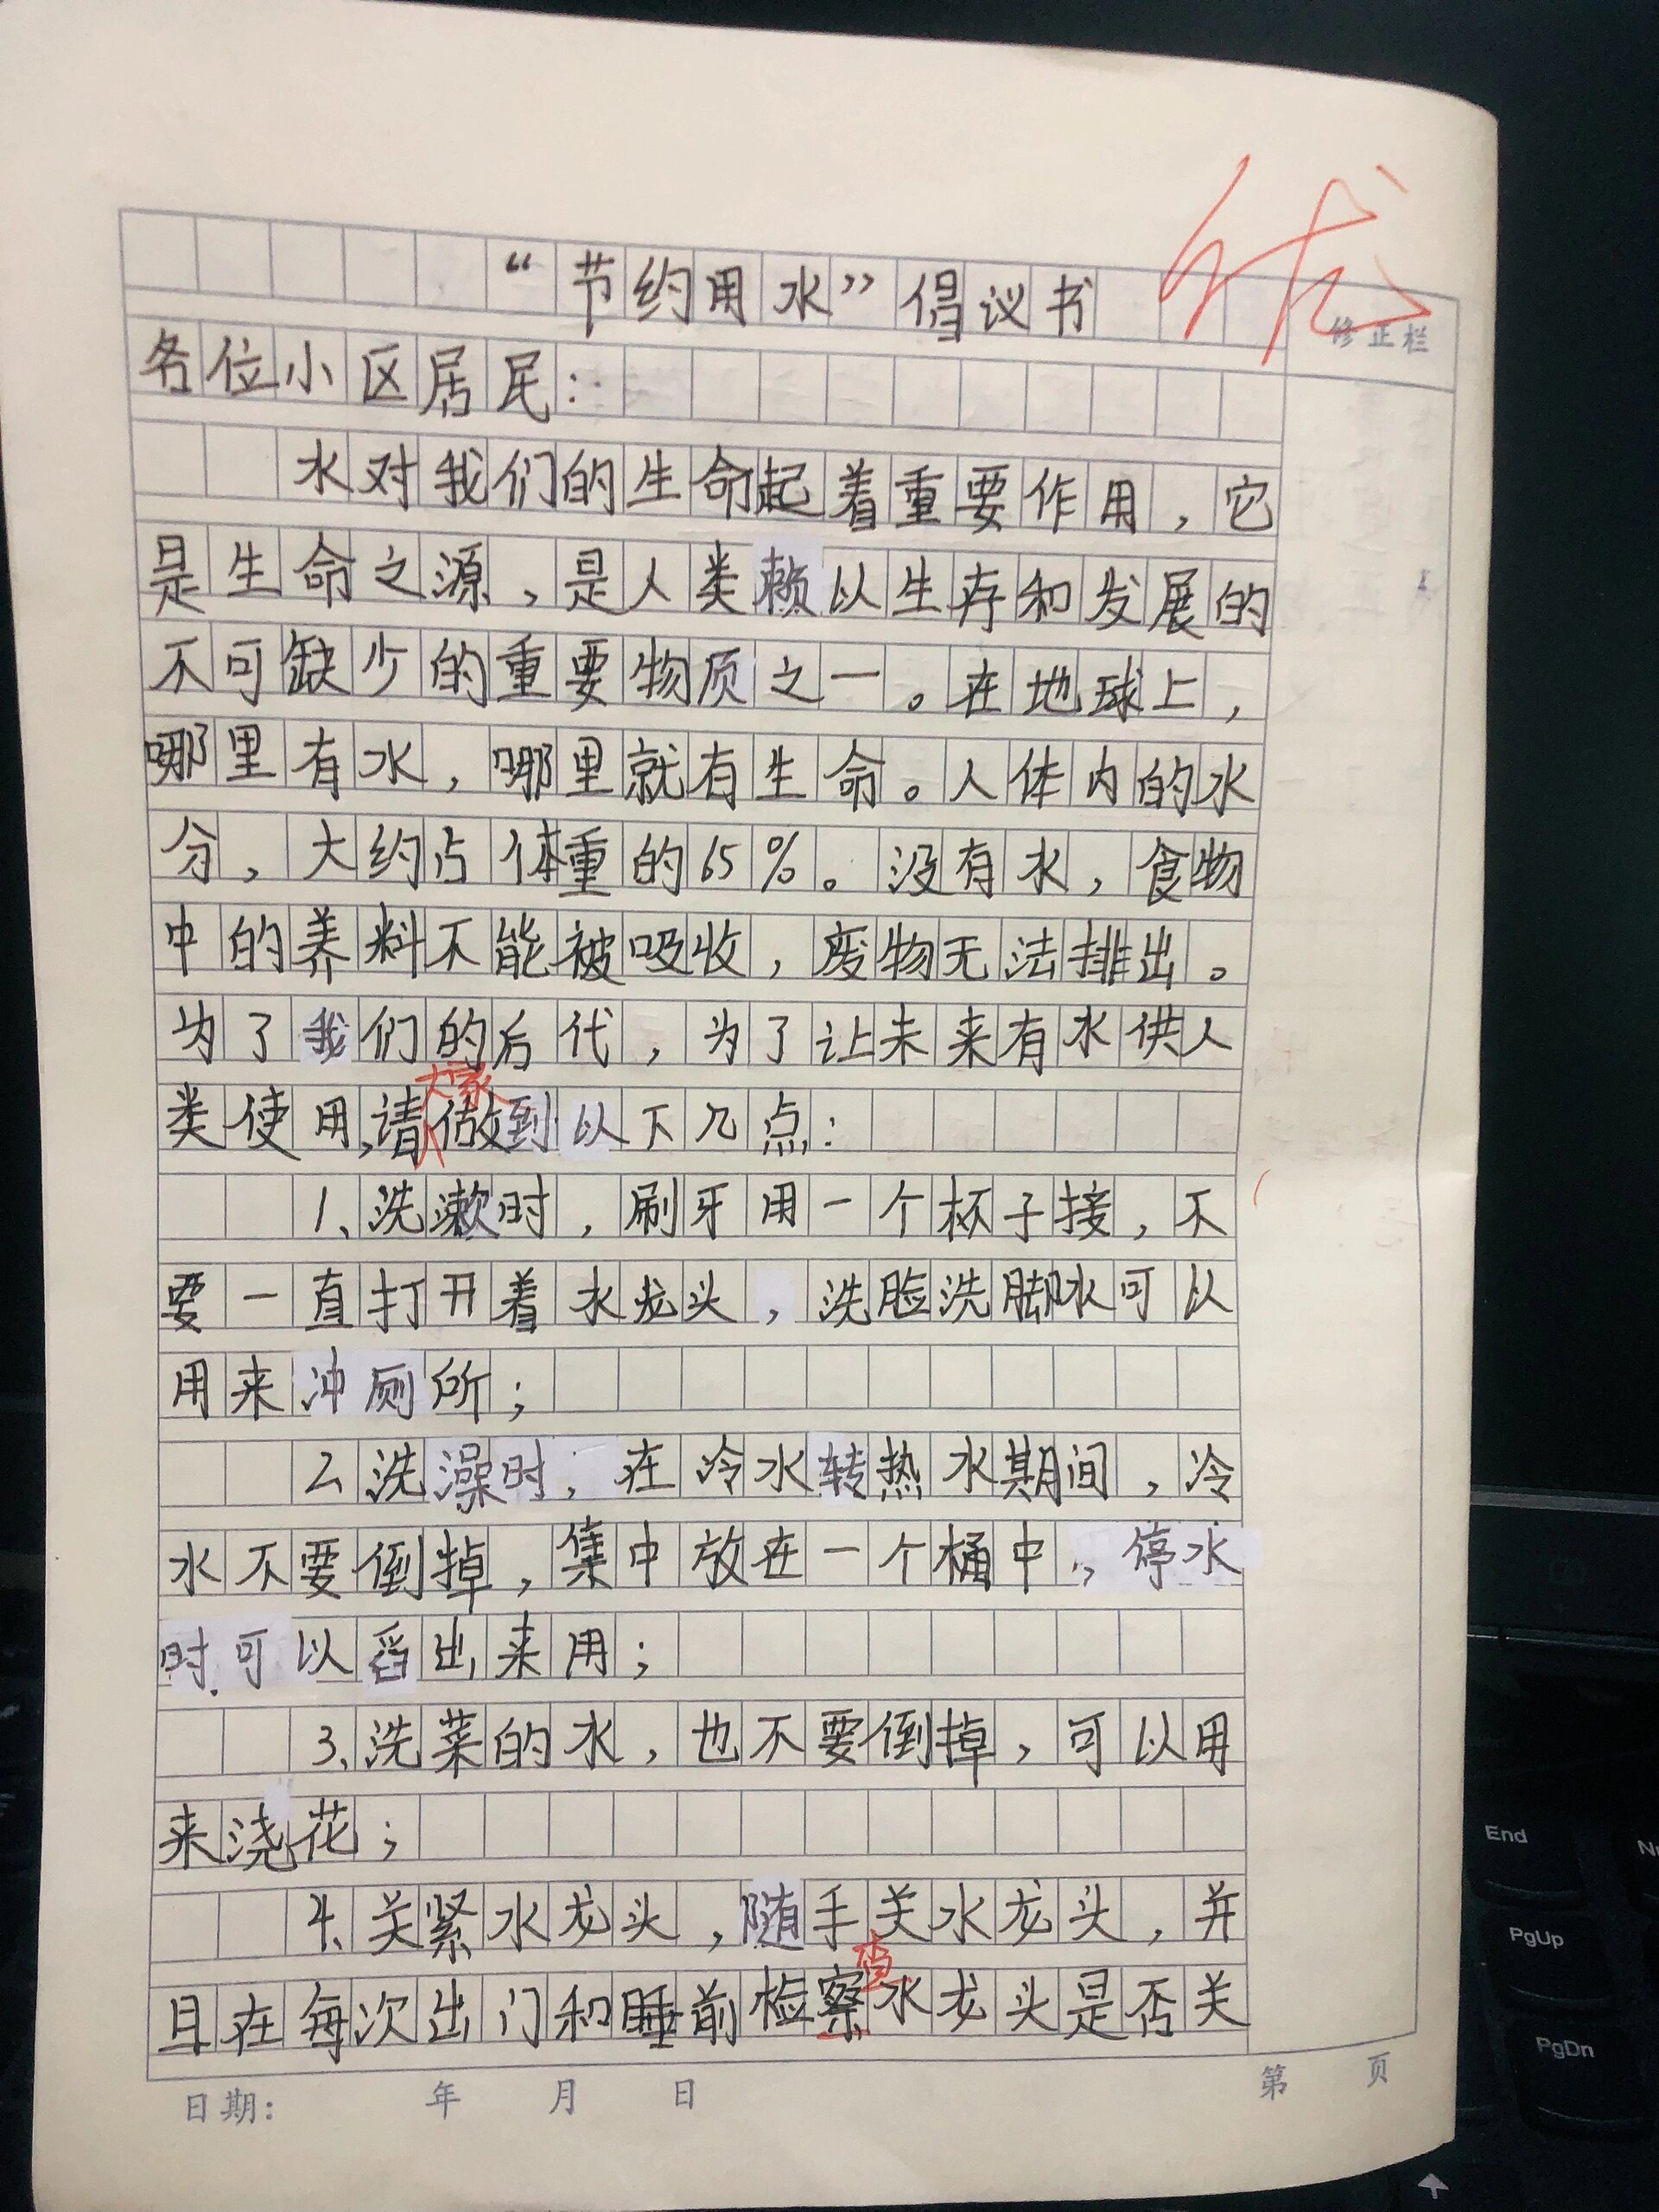 优
“节约用水”倡议书
修正栏
各位小区居民：
水对我们的生命起着重要作用，它
是生命之源，是人类赖以生存和发展的
不可缺少的重要物质之一。在地球上，
哪里有水，哪里就有生命。人体内的水
分，大约占体重的65%。没有水，食物
中的养料不能被吸收，废物无法排出。
为了我们的后代，为了让未来有水供人
大家
类使用，请做到以下几点：
1、洗漱时，刷牙用一个杯子接，不
要一直打开着水龙头，洗脸洗脚水可以
用来冲厕所；
2、洗澡时，在冷水转热水期间，冷
水不要倒掉，集中放在一个桶中，停水
时可以舀出来用；
3、洗菜的水，也不要倒掉，可以用
来浇花；
4、关紧水龙头，随手关水龙头，并
查
且在每次出门和睡前检察水龙头是否关
日期： 年 月 日
第 页
End
PgUp
PgDn